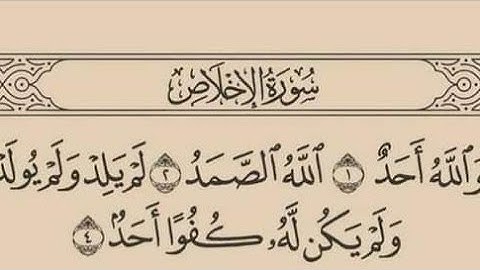 سُورَةُ الإِخْلَاصِ
وَاللَّهُ أَحَدٌ ١ اللَّهُ الصَّمَدُ ٢ لَمْ يَلِدْ وَلَمْ يُولَدْ
وَلَمْ يَكُن لَّهُۥ كُفُوًا أَحَدٌۢ ٤